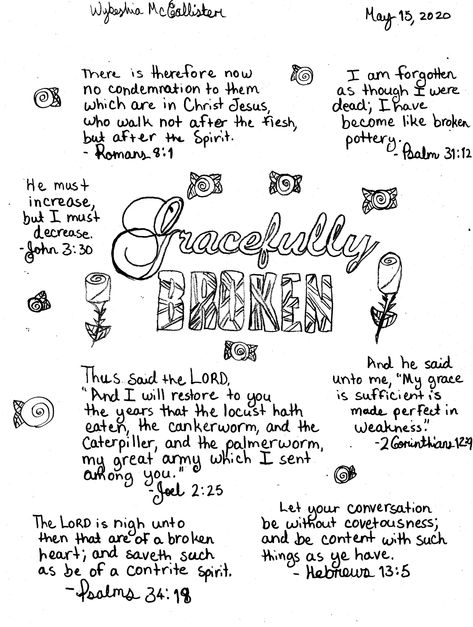 Wykeshia McCallister
May 15, 2020
There is therefore now
no condemnation to them
which are in Christ Jesus,
who walk not after the flesh,
but after the Spirit.
- Romans 8:1
I am forgotten
as though I were
dead; I have
become like broken
pottery.
- Psalm 31:12
He must
increase,
but I must
decrease.
- John 3:30
Gracefully
BROKEN
Thus said the LORD,
"And I will restore to you
the years that the locust hath
eaten, the cankerworm, and the
caterpiller, and the palmerworm,
my great army which I sent
among you."
- Joel 2:25
And he said
unto me, "My grace
is sufficient is
made perfect in
weakness."
- 2 Corinthians 12:9
The LORD is nigh unto
then that are of a broken
heart; and saveth such
as be of a contrite spirit.
- Psalms 34:18
Let your conversation
be without covetousness;
and be content with such
things as ye have.
- Hebrews 13:5